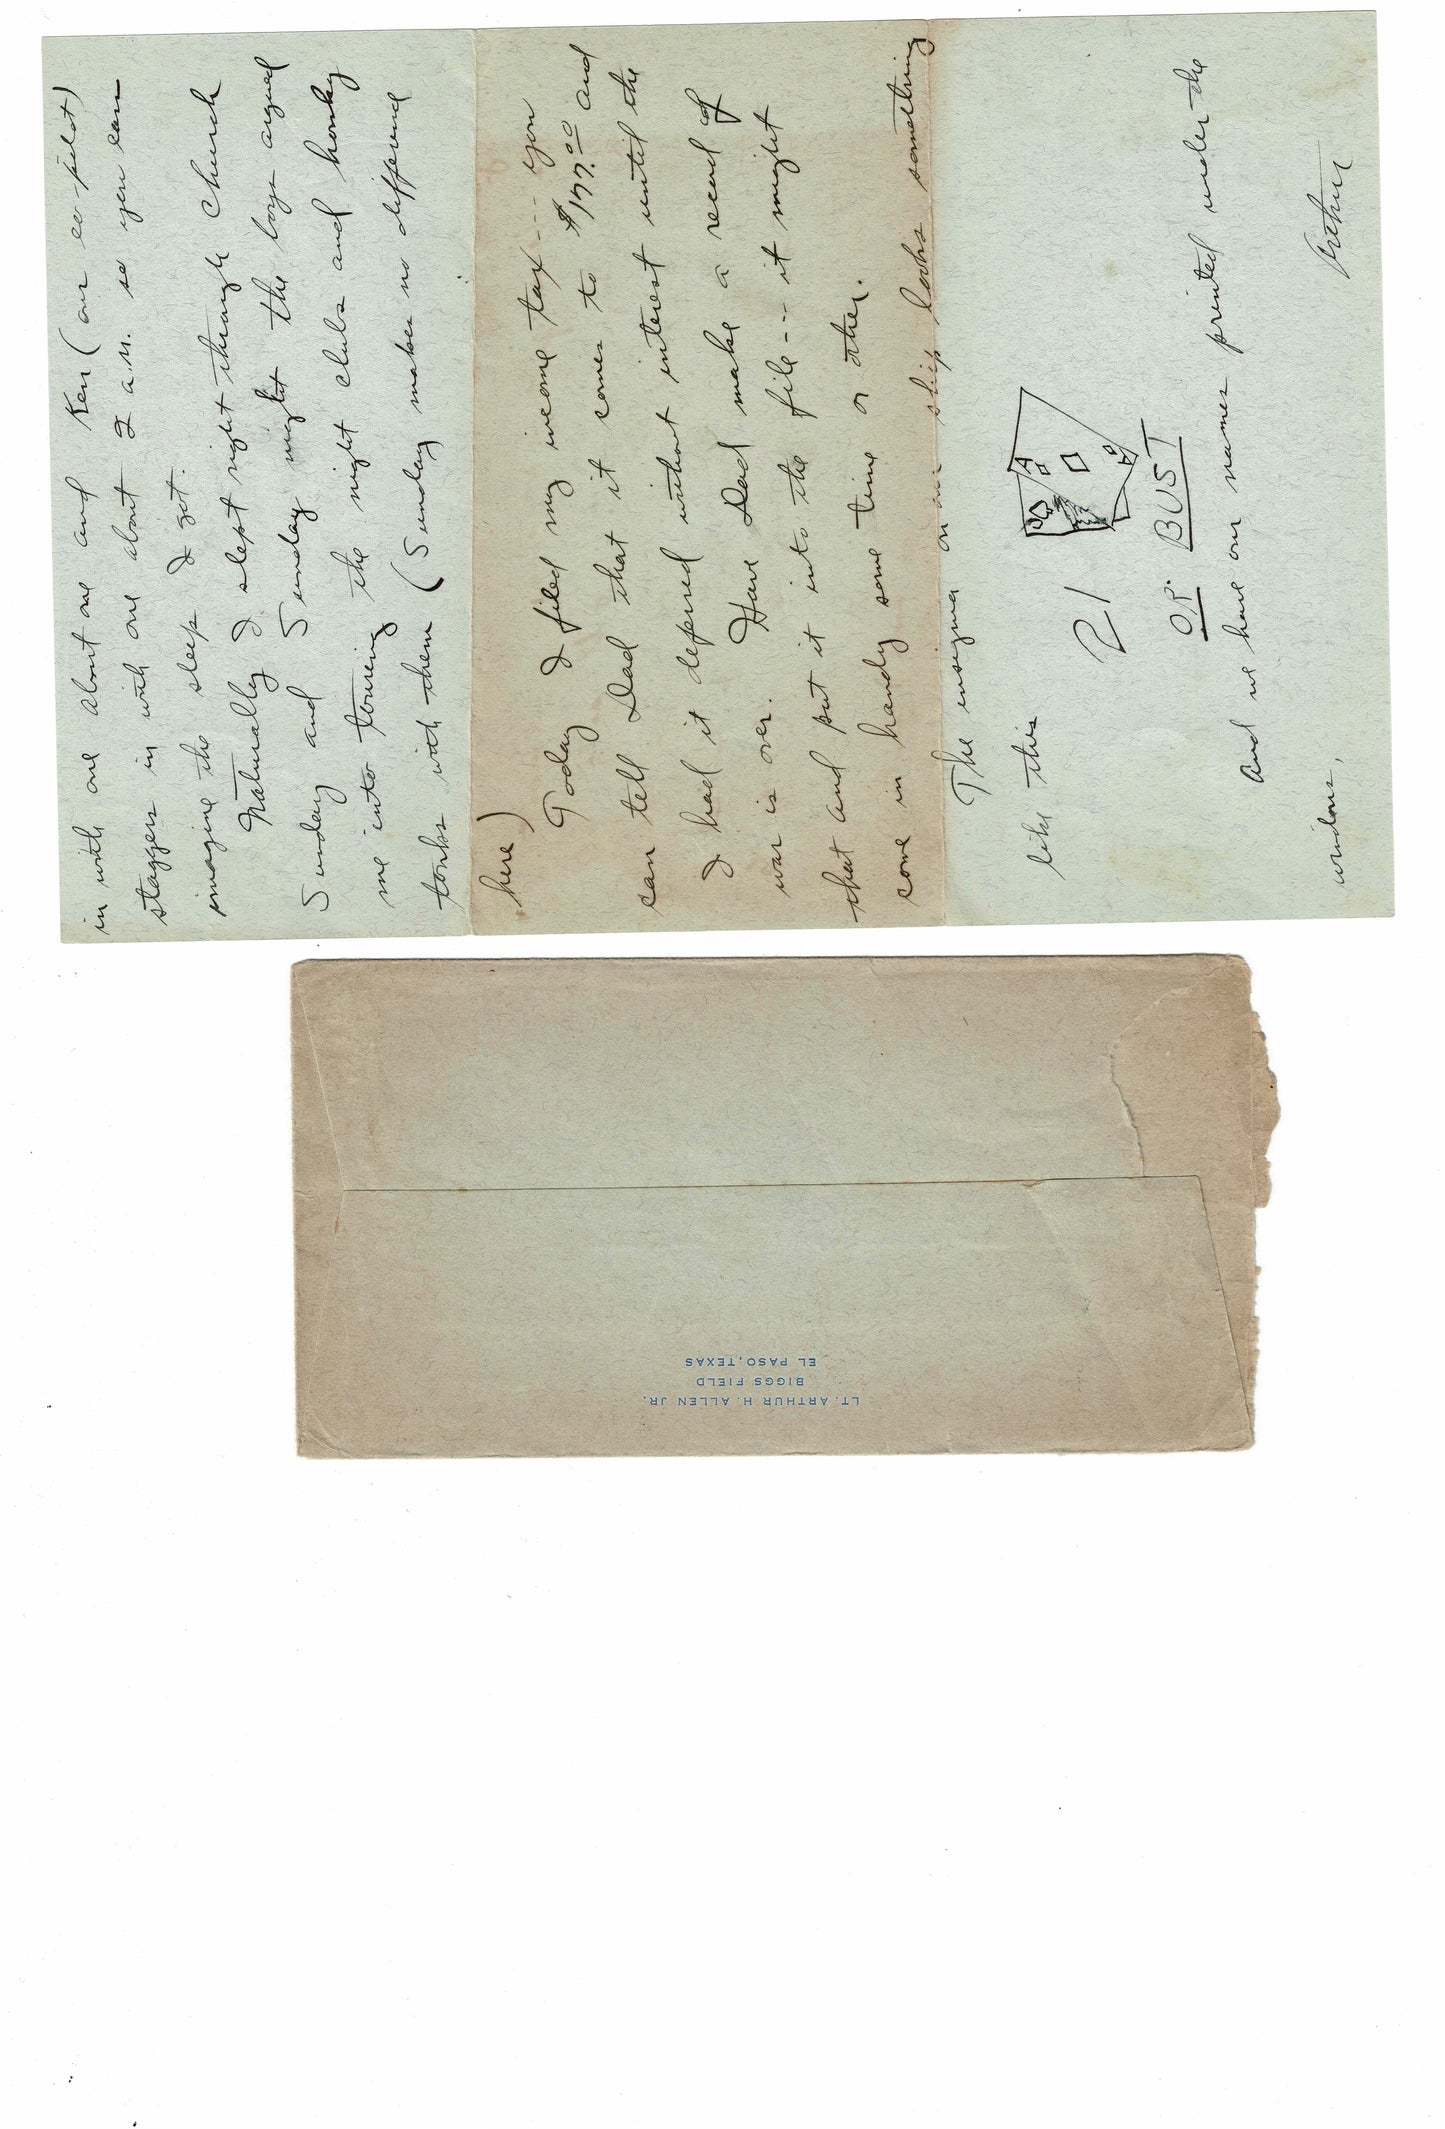 in with one about one and Ken (our co-pilot)
staggers in with one about 2 a.m. so you can
imagine the sleep I got.
Naturally I slept right through church
Sunday and Sunday night the boys argued
me into touring the night clubs and honky
tonks with them (Sunday makes no difference
here)
Today I filed my income tax ---- you
can tell Dad that it comes to $177.00 and
I had it deferred without interest until the
war is over. Have Dad make a record of
that and put it into the file --- it might
come in handy some time or other.
The insignia on our ship looks something
like this
21
OR BUST
and we have our names printed under the
windows,
Arthur
LT. ARTHUR H. ALLEN JR.
BIGGS FIELD
EL PASO, TEXAS